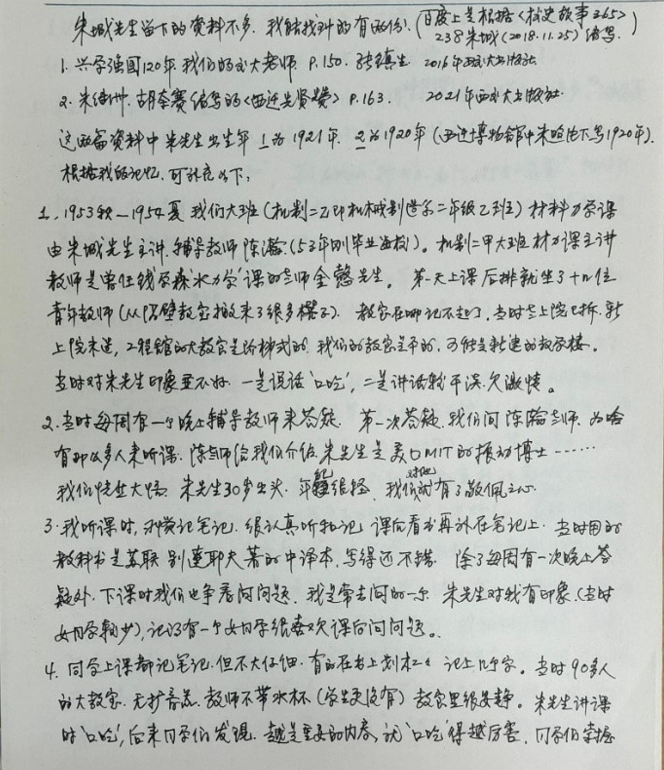 朱城先生留下的资料不多. 我能找到的有两份.(百度上是根据《校史故事365》
238朱城(2018.11.25)编写.)
1. 兴学强国120年 我们的交大老师 P.150. 张镇生 2016年西交大出版社
2. 朱继洲、胡奈赛编写的《西迁先贤赞》P.163. 2021年西交大出版社.
这两篇资料中朱先生出生年 1为1921年. 2为1920年(西迁博物馆中朱照片下写1920年).
根据我的记忆. 可补充以下:
1. 1953秋—1954夏 我们大班(机制二乙即机械制造系二年级乙班)材料力学课
由朱城先生主讲. 辅导教师陈瀚(53年刚毕业留校)。机制二甲大班材力课主讲
教师是曾任钱学森水力学课的老师金悫先生。第一天上课后排就坐了十几位
青年教师(从隔壁教室搬来了很多椅子). 教室在哪记不起了. 当时老上院已拆. 新
上院未造, 工程馆的大教室是阶梯式的. 我们的教室是平的. 可能是新建的教学楼。
当时对朱先生印象并不好. 一是说话"口吃", 二是讲话较干涩. 欠激情。
2. 当时每周有一个晚上辅导教师来答疑. 第一次答疑. 我们问陈瀚老师. 为啥
有那么多人来听课. 陈老师给我们介绍. 朱先生是美国MIT的振动博士……
我们恍然大悟. 朱先生30岁出头. 年纪很轻. 我们对他就有了敬佩之心.
3. 我听课时, 很认真听和记. 课后看书再补在笔记上. 当时用的
教科书是苏联别辽耶夫著的中译本, 写得还不错. 除了每周有一次晚上答
疑外. 下课时我们也争着问问题. 我是常去问的一个. 朱先生对我有印象.(当时
女同学较少). 记得有一个女同学很喜欢课后问问题。
4. 同学上课都记笔记. 但不太仔细. 有的在书上划杠杠 记上几个字。当时90多人
的大教室. 无扩音器. 教师不带水杯(学生更没有)教室里很安静。朱先生讲课
时"口吃", 后来同学们发现. 越是重要的内容, 说"口吃"得越厉害. 同学们掌握